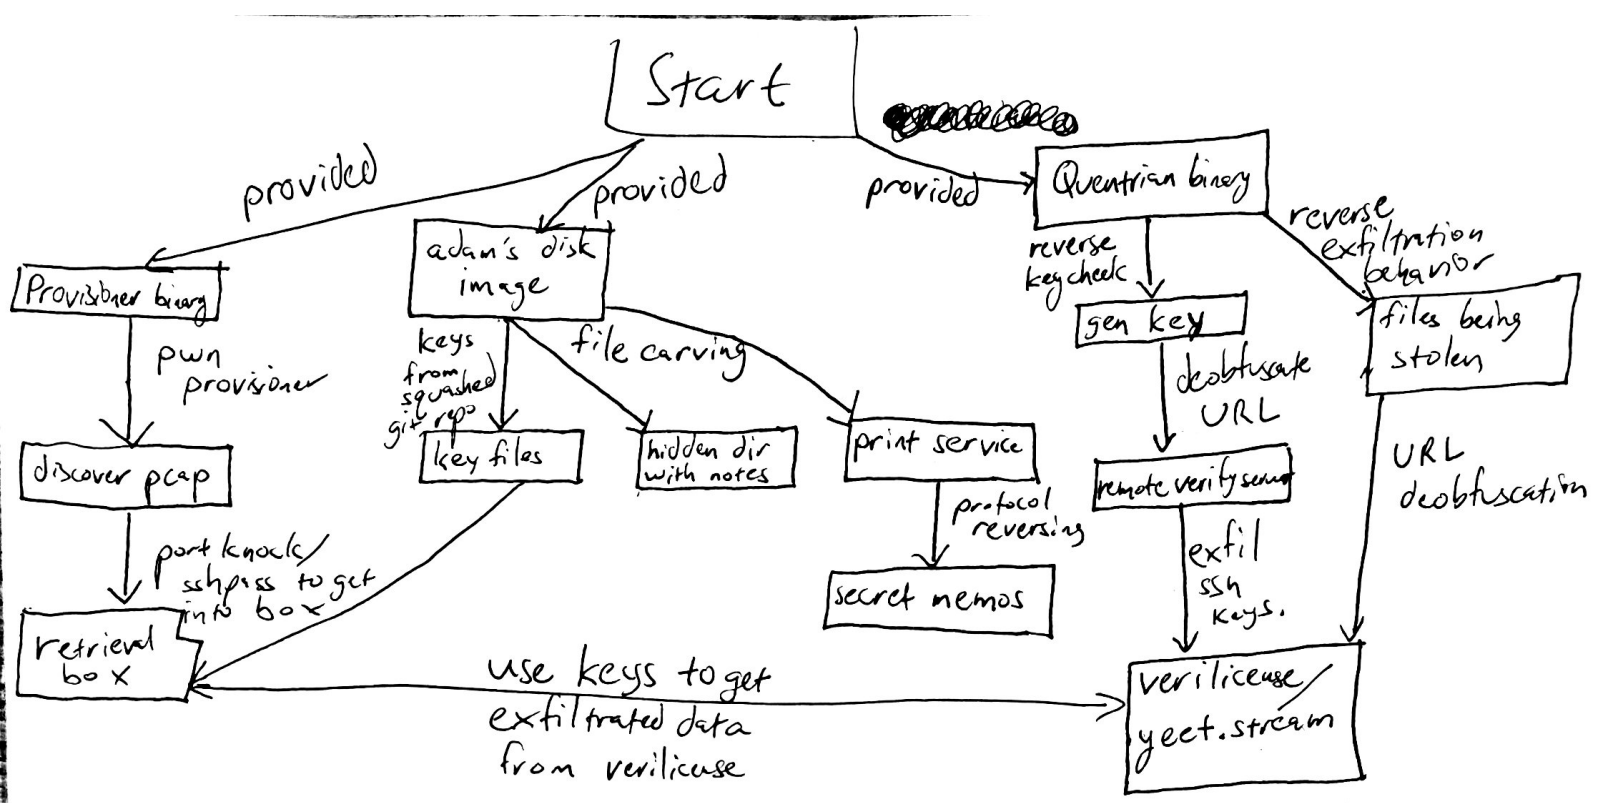 Start
provided
provided
provided
Quentrian binary
reverse
exfiltration
behavior
reverse
keycheck
adam's disk
image
Provisioner binary
gen key
files being
stolen
pwn
provisioner
keys
from
squashed
git repo
file carving
deobfuscate
URL
discover pcap
key files
hidden dir
with notes
print service
remote verify server
URL
deobfuscation
port knock/
sshpass to get
into box
protocol
reversing
exfil
ssh
keys.
secret memos
retrieval
box
use keys to get
exfiltrated data
from verilicense
verilicense/
yeet.stream